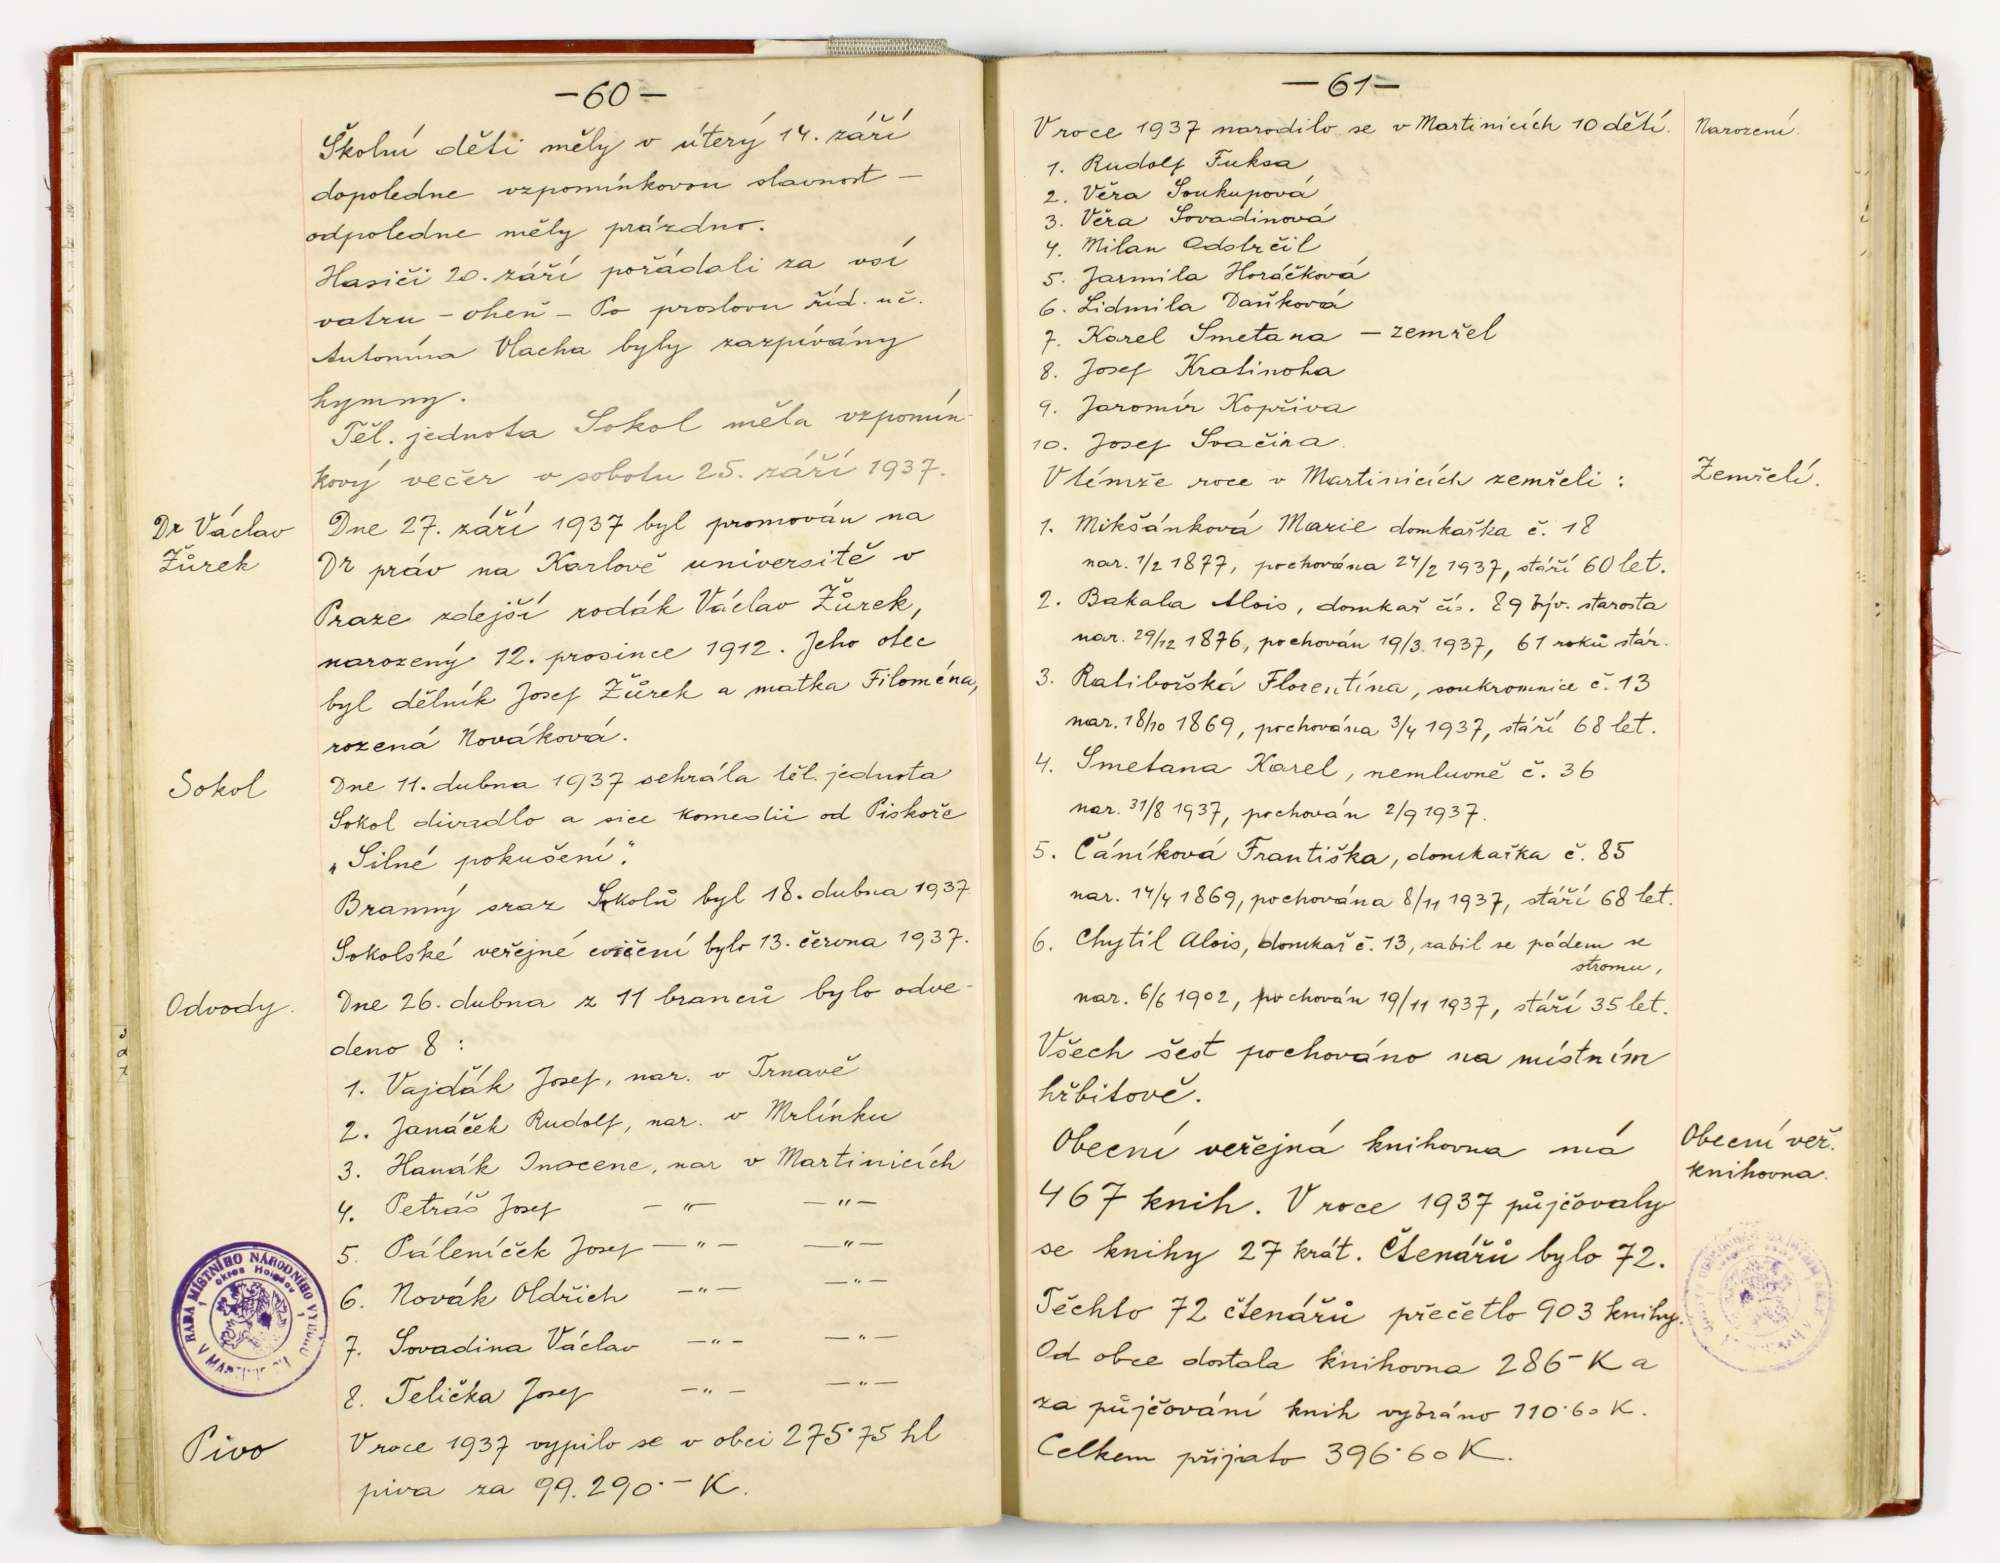 —60—
Školní děti měly v úterý 14. září
dopoledne vzpomínkovou slavnost —
odpoledne měly prázdno.
Hasiči 20. září pořádali za vsí
vatru – oheň – Po proslovu říd. uč.
Antonína Vlacha byly zazpívány
hymny.
Těl. jednota Sokol měla vzpomín-
kový večer v sobotu 25. září 1937.
Dr Václav
Žůrek
Dne 27. září 1937 byl promován na
Dr práv na Karlově universitě v
Praze zdejší rodák Václav Žůrek,
narozený 12. prosince 1912. Jeho otec
byl dělník Josef Žůrek a matka Filoména,
rozená Nováková.
Sokol
Dne 11. dubna 1937 sehrála těl. jednota
Sokol divadlo a sice komedii od Piskoře
„Silné pokušení“.
Branný sraz Sokolů byl 18. dubna 1937
Sokolské veřejné cvičení bylo 13. června 1937.
Odvody.
Dne 26. dubna z 11 branců bylo odve-
deno 8 :
1. Vajďák Josef, nar. v Trnavě
2. Janáček Rudolf, nar. v Mrlínku
3. Hanák Inocenc, nar v Martinicích
4. Petráš Josef —"— —"—
5. Páleníček Josef —"— —"—
6. Novák Oldřich —"— —"—
7. Sovadina Václav —"— —"—
8. Telička Josef —"— —"—
RADA MÍSTNÍHO NÁRODNÍHO VÝBORU
okres Holešov
V
Pivo
V roce 1937 vypilo se v obci 275·75 hl
piva za 99.290·– K.
—61—
V roce 1937 narodilo se v Martinicích 10 dětí.
Narození.
1. Rudolf Fuksa
2. Věra Soukupová
3. Věra Sovadinová
4. Milan Odstrčil
5. Jarmila Horáčková
6. Lidmila Daňková
7. Karel Smetana — zemřel
8. Josef Kratinoha
9. Jaromír Kopřiva
10. Josef Svačina.
V témže roce v Martinicích zemřeli :
Zemřelí.
1. Mikšánková Marie domkařka č. 18
nar. 1/2 1877, pochována 24/2 1937, stáří 60 let.
2. Bakala Alois, domkař čís. 89 býv. starosta
nar. 29/12 1876, pochován 19/3 1937, 61 roků stár.
3. Ratibořská Florentína, soukromnice č. 13
nar. 18/10 1869, pochována 3/4 1937, stáří 68 let.
4. Smetana Karel, nemluvně č. 36
nar. 31/8 1937, pochován 2/9 1937.
5. Čáníková Františka, domkařka č. 85
nar. 14/4 1869, pochována 8/11 1937, stáří 68 let.
6. Chytil Alois, domkař č. 13, zabil se pádem se
stromu,
nar. 6/6 1902, pochován 19/11 1937, stáří 35 let.
Všech šest pochováno na místním
hřbitově.
Obecní veř.
knihovna.
Obecní veřejná knihovna má
467 knih. V roce 1937 půjčovaly
se knihy 27 krát. Čtenářů bylo 72.
Těchto 72 čtenářů přečetlo 903 knihy.
Od obce dostala knihovna 286– K a
za půjčování knih vybráno 110·60 K.
Celkem přijato 396·60 K.